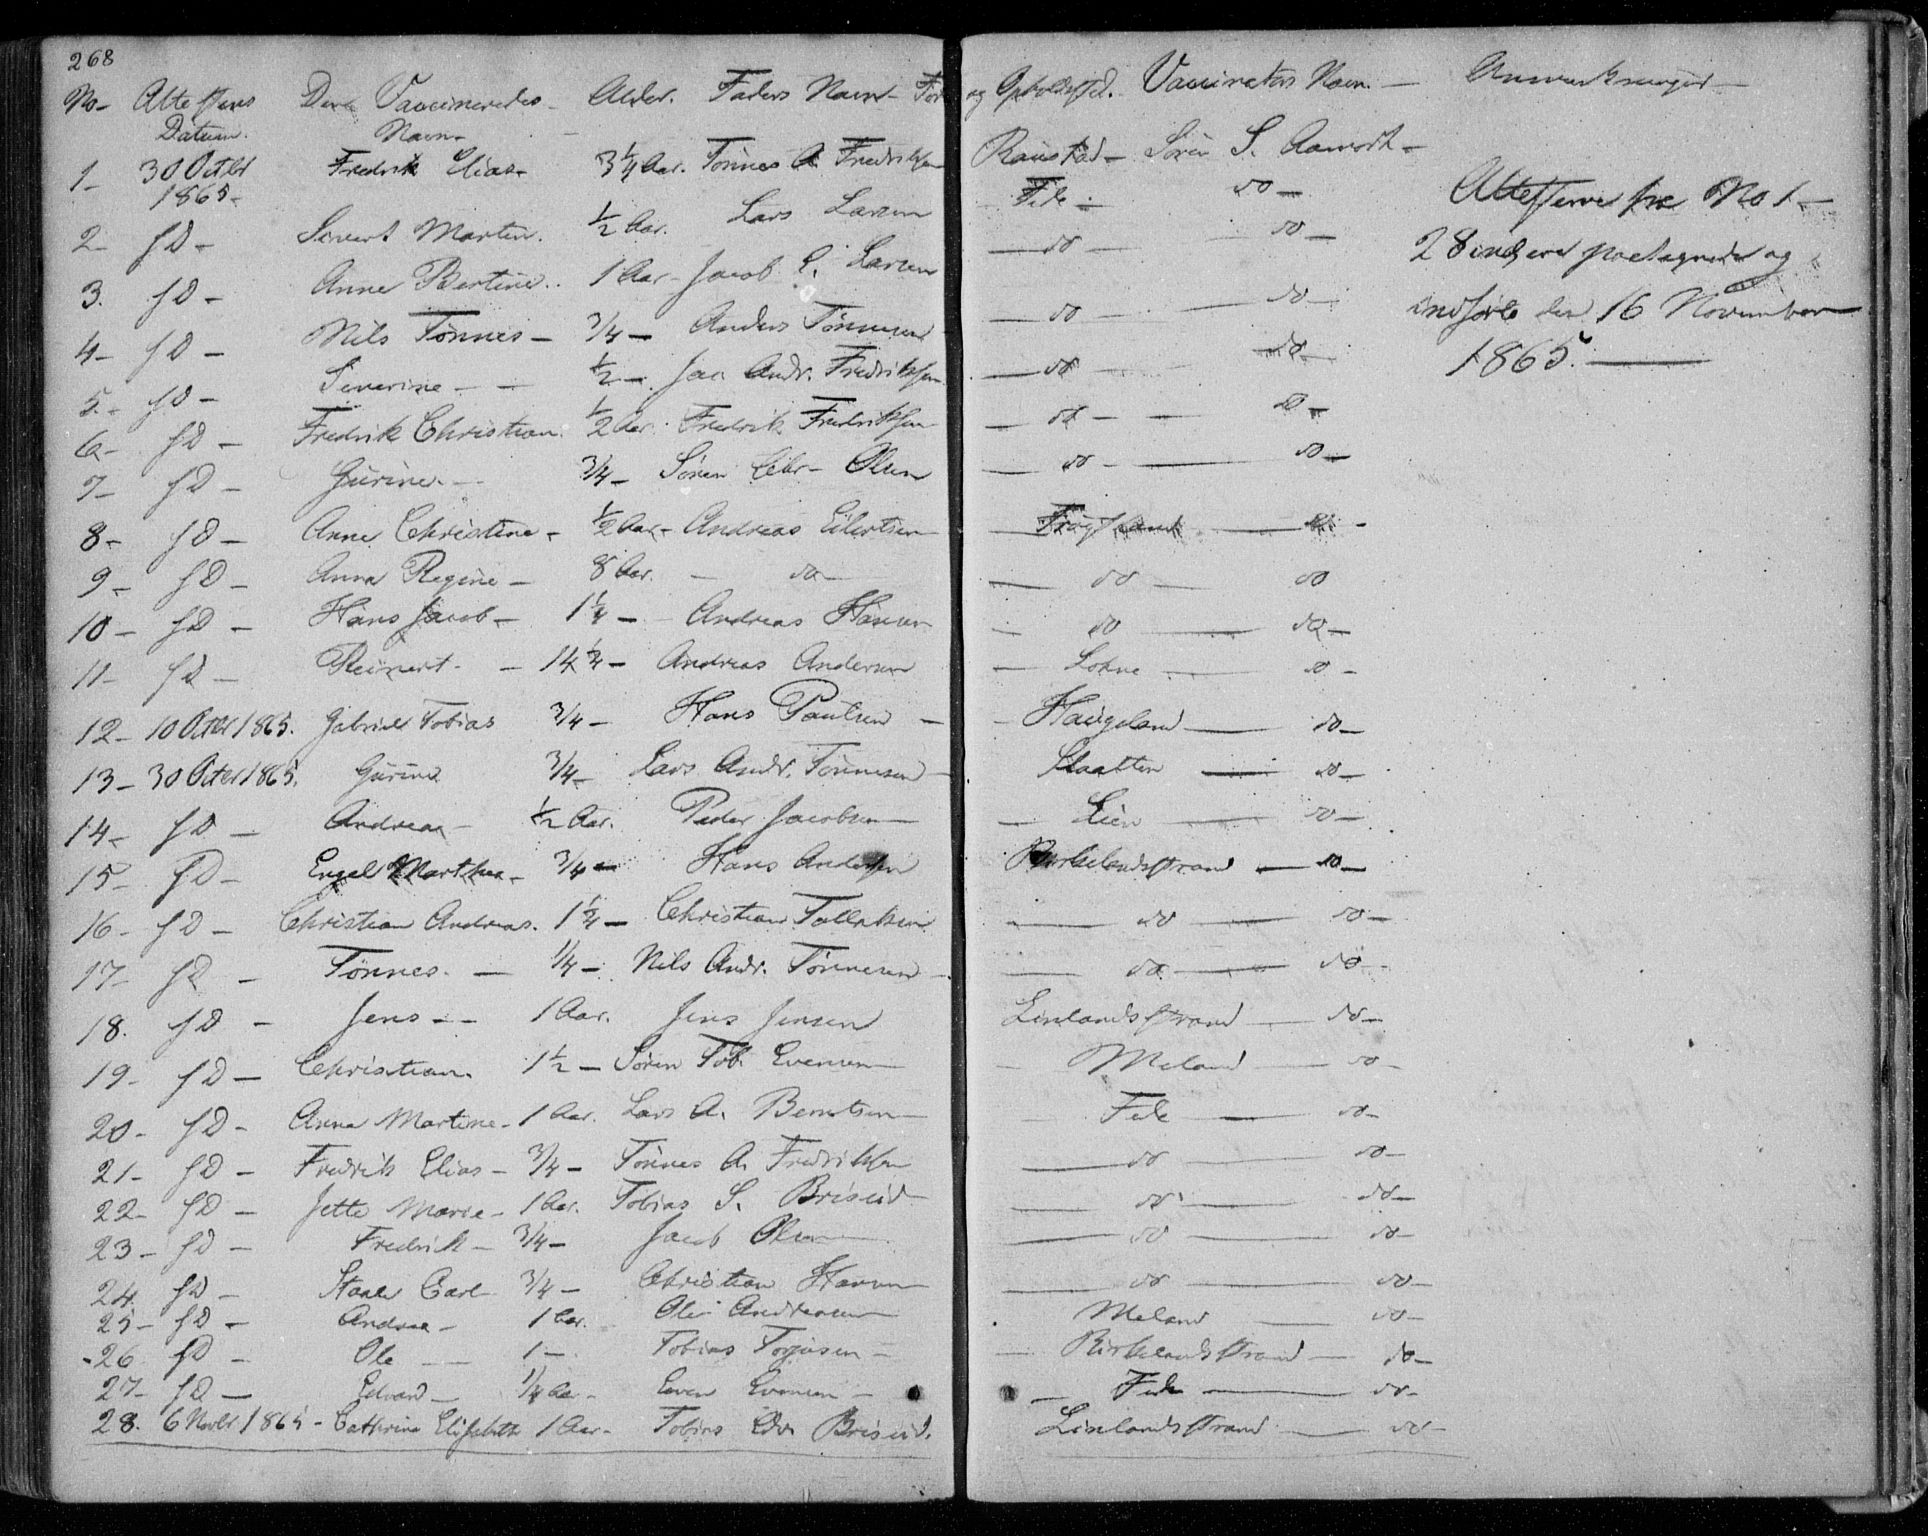 268
No- Attestens Datum. Den Vaccineredes Navn- Alder. Faders Navn- og Opholdssted. Vaccinators Navn. — Anmærkninger —
1- 30 Octbr 1865- Fredrik Elias- 3/4 Aar. Tönnes A Fredriksen Raustad- Sören S. Aamodt-
2- sD- Sivert Martin. 1/2 Aar. Lars Larsen Fede- do-
3. sD- Anne Bertine. 1 Aar- Jacob L. Larsen -do- do-
4- sD- Nils Tönnes- 3/4- Anders Tönnesen -do- do-
5- sD- Severine- - 1/2- Jan Andr. Fredriksen -do- do-
6- sD- Fredrik Christian. 1/2 Aar. Fredrik Fredriksen -do- do-
7- sD- Gurine.- 3/4- Sören Chr- Olsen -do- do-
8- sD- Anne Christine- 1/2 Aar- Andreas Eilertsen - do-
9- sD- Anna Regine- 8 Aar. - do- -do- do
10- sD- Hans Jacob- 1 1/4- Andreas Hansen - do - do-
11- sD- Reinert.- 14 - Andreas Andersen - Lohne - do-
12- 10 Octbr 1865. Gabriel Tobias 3/4- Hans Paulsen - Haugeland - do-
13- 30 Octbr 1865. Gurine 3/4- Lars Andr. Tönnesen - Slaatten - do-
14- sD- Andreas- 1/2 Aar. Peder Jacobsen- - Lien - do-
15- sD- Engel Marthea- 3/4- Hans Andersen Birkelandsstrand - do-
16- sD- Christian Andreas. 1 - Christian Tallaksen - do - do-
17- sD- Tönnes.- 1/4- Nils Andr. Tönnesen- - do - do-
18. sD- Jens-- 1 Aar. Jens Jensen Linlandsstrand - do-
19- sD- Christian. 1 1/2- Sören Tob. Evensen- - Meland - do-
20- sD- Anna Martine- 1 Aar. Lars A. Berntsen- - Fede - do-
21- sD- Fredrik Elias- 3/4- Tönnes A. Fredriksen - do - do-
22- sD- Jette Marie- 1 Aar. Tobias S. Briseid - do - do-
23- sD- Fredrik- 3/4- Jacob Olsen - do - do-
24. sD- Staale Carl 3/4- Christian Hansen - do - do-
25- sD- Andrea- 1 Aar. Ole Andreasen Meland - do-
26 sD- Ole -- 1- Tobias Torjusen- - Birkelandsstrand - do-
27- sD- Edvard- 1/4 Aar- Even Evensen- - Fede - do-
28. 6 Novbr. 1865- Cathrine Elisabeth 1 Aar- Tobias Edv. Briseid. Linlandsstrand - do-
Attesterne fra No 1-
28 incl ere paategnede og
indförte den 16 November
1865.